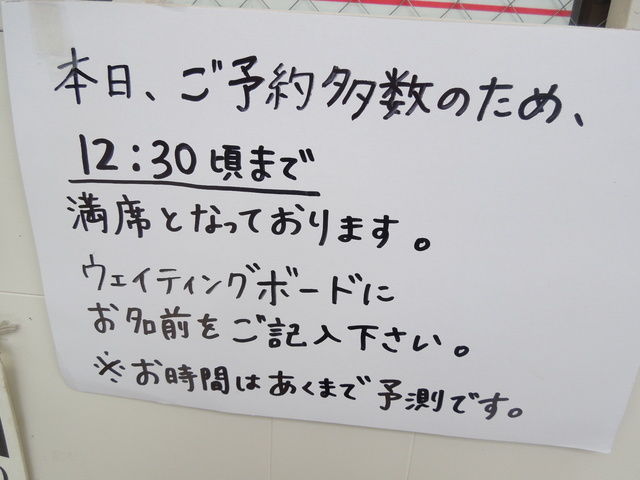 本日、ご予約多数のため、
12:30頃まで
満席となっております。
ウェイティングボードに
お名前をご記入下さい。
※お時間はあくまで予測です。